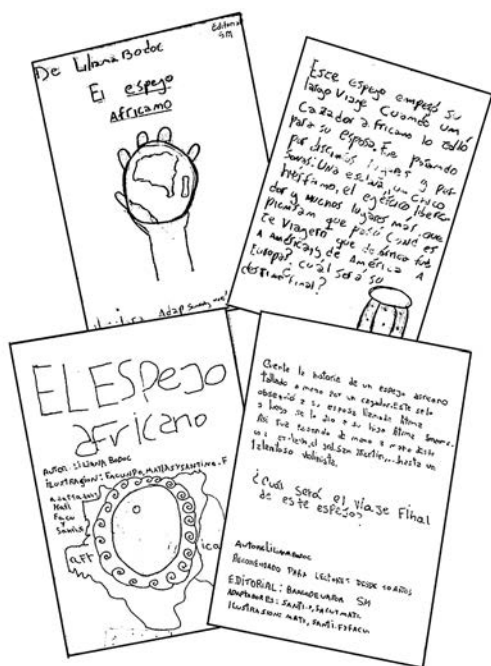 De Liliana Bodoc
Editorial
SM
El espejo
Africano
Este espejo empesó su
largo Viage Cuando um
Cazador africano lo talló
para su esposa. Fue pasando
por
y per
sonas: Una esclava, un chico
huérfano, el
y muchos lugares mas. que
piensam que pasó con es
te viagero que de áfrica fue
a América y de América a
Europa? cuál será su
destino final?
EL ESPEJO
africano
AUTOR: LILIANA BODOC
ILUSTRACION: FACUNDO, MATIAS Y SANTINO. F
Mati
Facu
y
Santi
AFR
ica
Cuenta la historia de un espejo africano
tallado a mano por un cazador. Este se lo
obsequió a su esposa llamada Atima
y luego se lo dio a su hija Atima
Así fue pasando de mano a mano desde
San Martin... hasta un
talentoso violinista.
¿Cuál será el viaje Final
de este espejo?
AUTORA: LILIANA BODOC
RECOMENDADO PARA LECTORES DESDE 10 AÑOS
EDITORIAL: BARCO DE VAPOR SM
ADAPTADORES: SANTI.F, FACU Y MATI.
ILUSTRACION: MATI, SANTI.F Y FACU